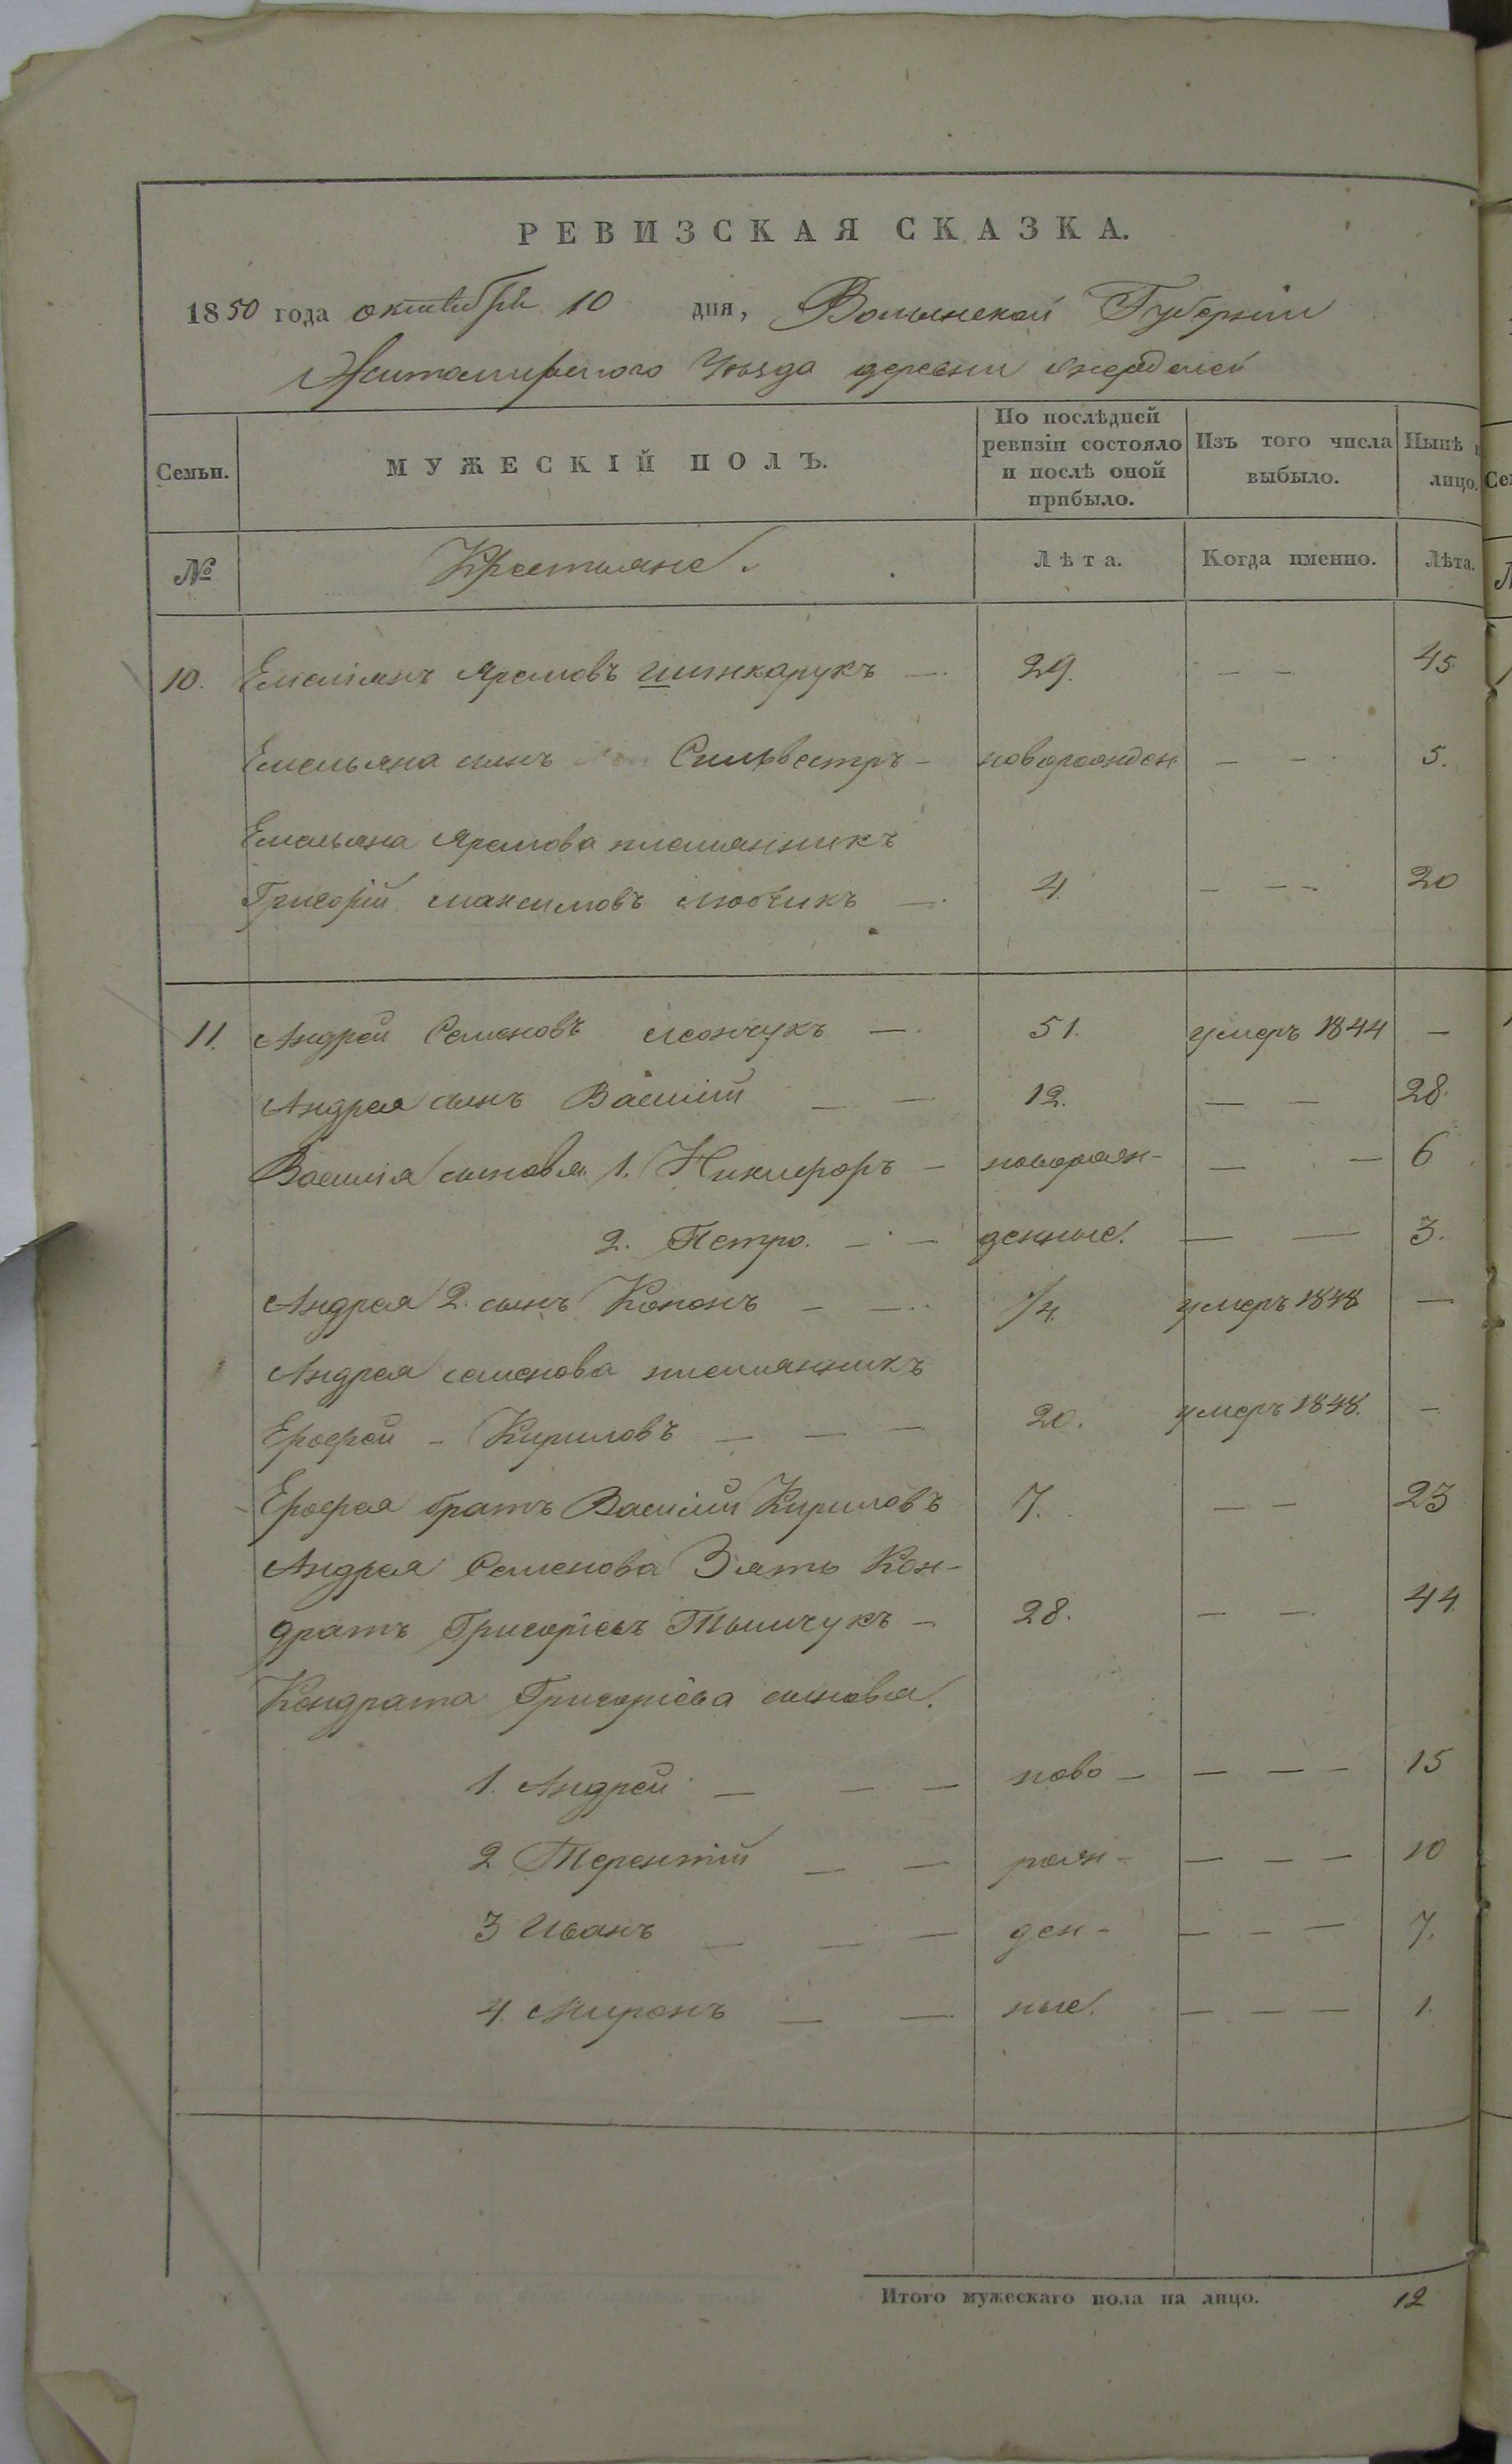 РЕВИЗСКАЯ СКАЗКА.
1850 года октября 10 дня, Волынской Губерніи
Житомирского Уѣзда деревни
Семьи. МУЖЕСКІЙ ПОЛЪ. По послѣдней ревизіи состояло и послѣ оной прибыло. Изъ того числа выбыло. Нынѣ лицо.
№ Крестьяне. Лѣта. Когда именно. Лѣта.
10. Емеліянъ Яремовъ Шинкарукъ — 29. — — 45
Емельяна сынъ Сильвестръ — новорожден — — 5.
Емельяна Яремова племянникъ
Григорій Максимовъ — 4. — — — 20
11. Андрей Семеновъ — 51. умеръ 1844 —
Андрея сынъ Василій — — 12. — — 28.
Василія сыновья 1. Никифоръ — новорож- — — 6
2. Петро. — — денные. — — 3.
Андрея 2. сынъ Кононъ — — 1/4. умеръ 1848 —
Андрея Семенова племянникъ
Ерофей — Кириловъ — — — 20. умеръ 1848. —
Ерофея братъ Василій Кириловъ 7. — — 23
Андрея Семенова Зять Кон-
дратъ Григорьевъ Тымчукъ — 28. — — 44
Кондрата Григоріева сыновья.
1. Андрей — — — ново — — — — 15
2 Терентій — — рож- — — — 10
3 Иванъ — — — ден- — — — 7.
4. Миронъ — — ные. — — — 1.
Итого мужескаго пола на лицо. 12